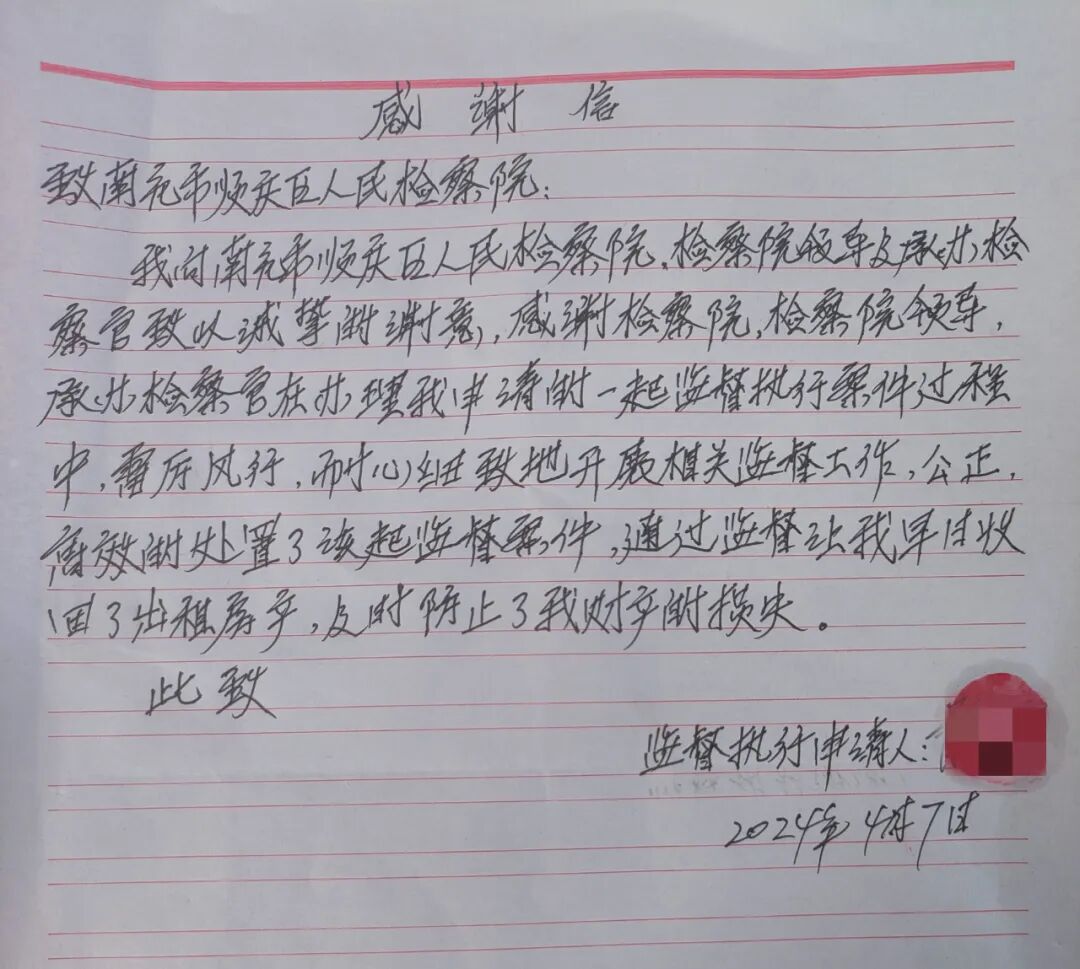 感谢信
致南充市顺庆区人民检察院:
我向南充市顺庆区人民检察院,检察院领导及承办检
察官致以诚挚的谢意,感谢检察院,检察院领导,
承办检察官在办理我申请的一起监督执行案件过程
中,雷厉风行,耐心细致地开展相关监督工作,公正,
高效的处置了该起监督案件,通过监督让我早日收
回了出租房产,及时防止了我财产的损失。
此致
监督执行申请人:
2024年4月7日